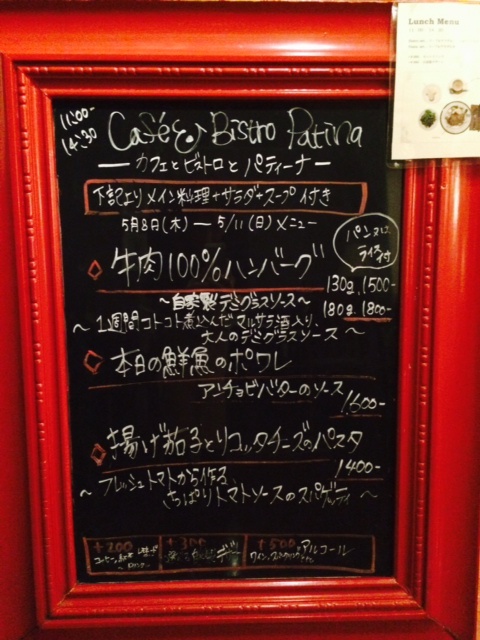 Lunch Menu
11:00-
14:30
Café & Bistro Patina
ー カフェとビストロと パティーナ ー
下記よりメイン料理+サラダ+スープ付き
5月8日(木) ー 5/11(日)メニュー
パン又は
ライス付
牛肉100%ハンバーグ
130g、1500-
〜自家製デミグラスソース〜
180g、1800-
〜1週間コトコト煮込んだマルサラ酒入り、
大人のデミグラスソース〜
本日の鮮魚のポワレ
アンチョビバターのソース
1600-
揚げ茄子とリコッタチーズのパスタ
1400-
〜フレッシュトマトから作る、
さっぱりトマトソースのスパゲッティ〜
+200
コーヒー、紅茶
+300
+500
アルコール